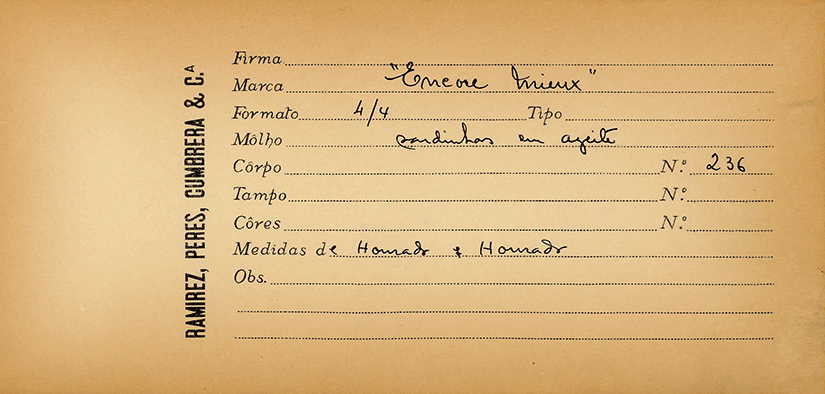 RAMIREZ, PERES, CUMBRERA & C.ᴬ
Firma
Marca "Encore Mieux"
Formato 4/4 Tipo
Môlho sardinhas em azeite
Côrpo N.º 236
Tampo N.º
Côres N.º
Medidas de Honrado & Honrado
Obs.